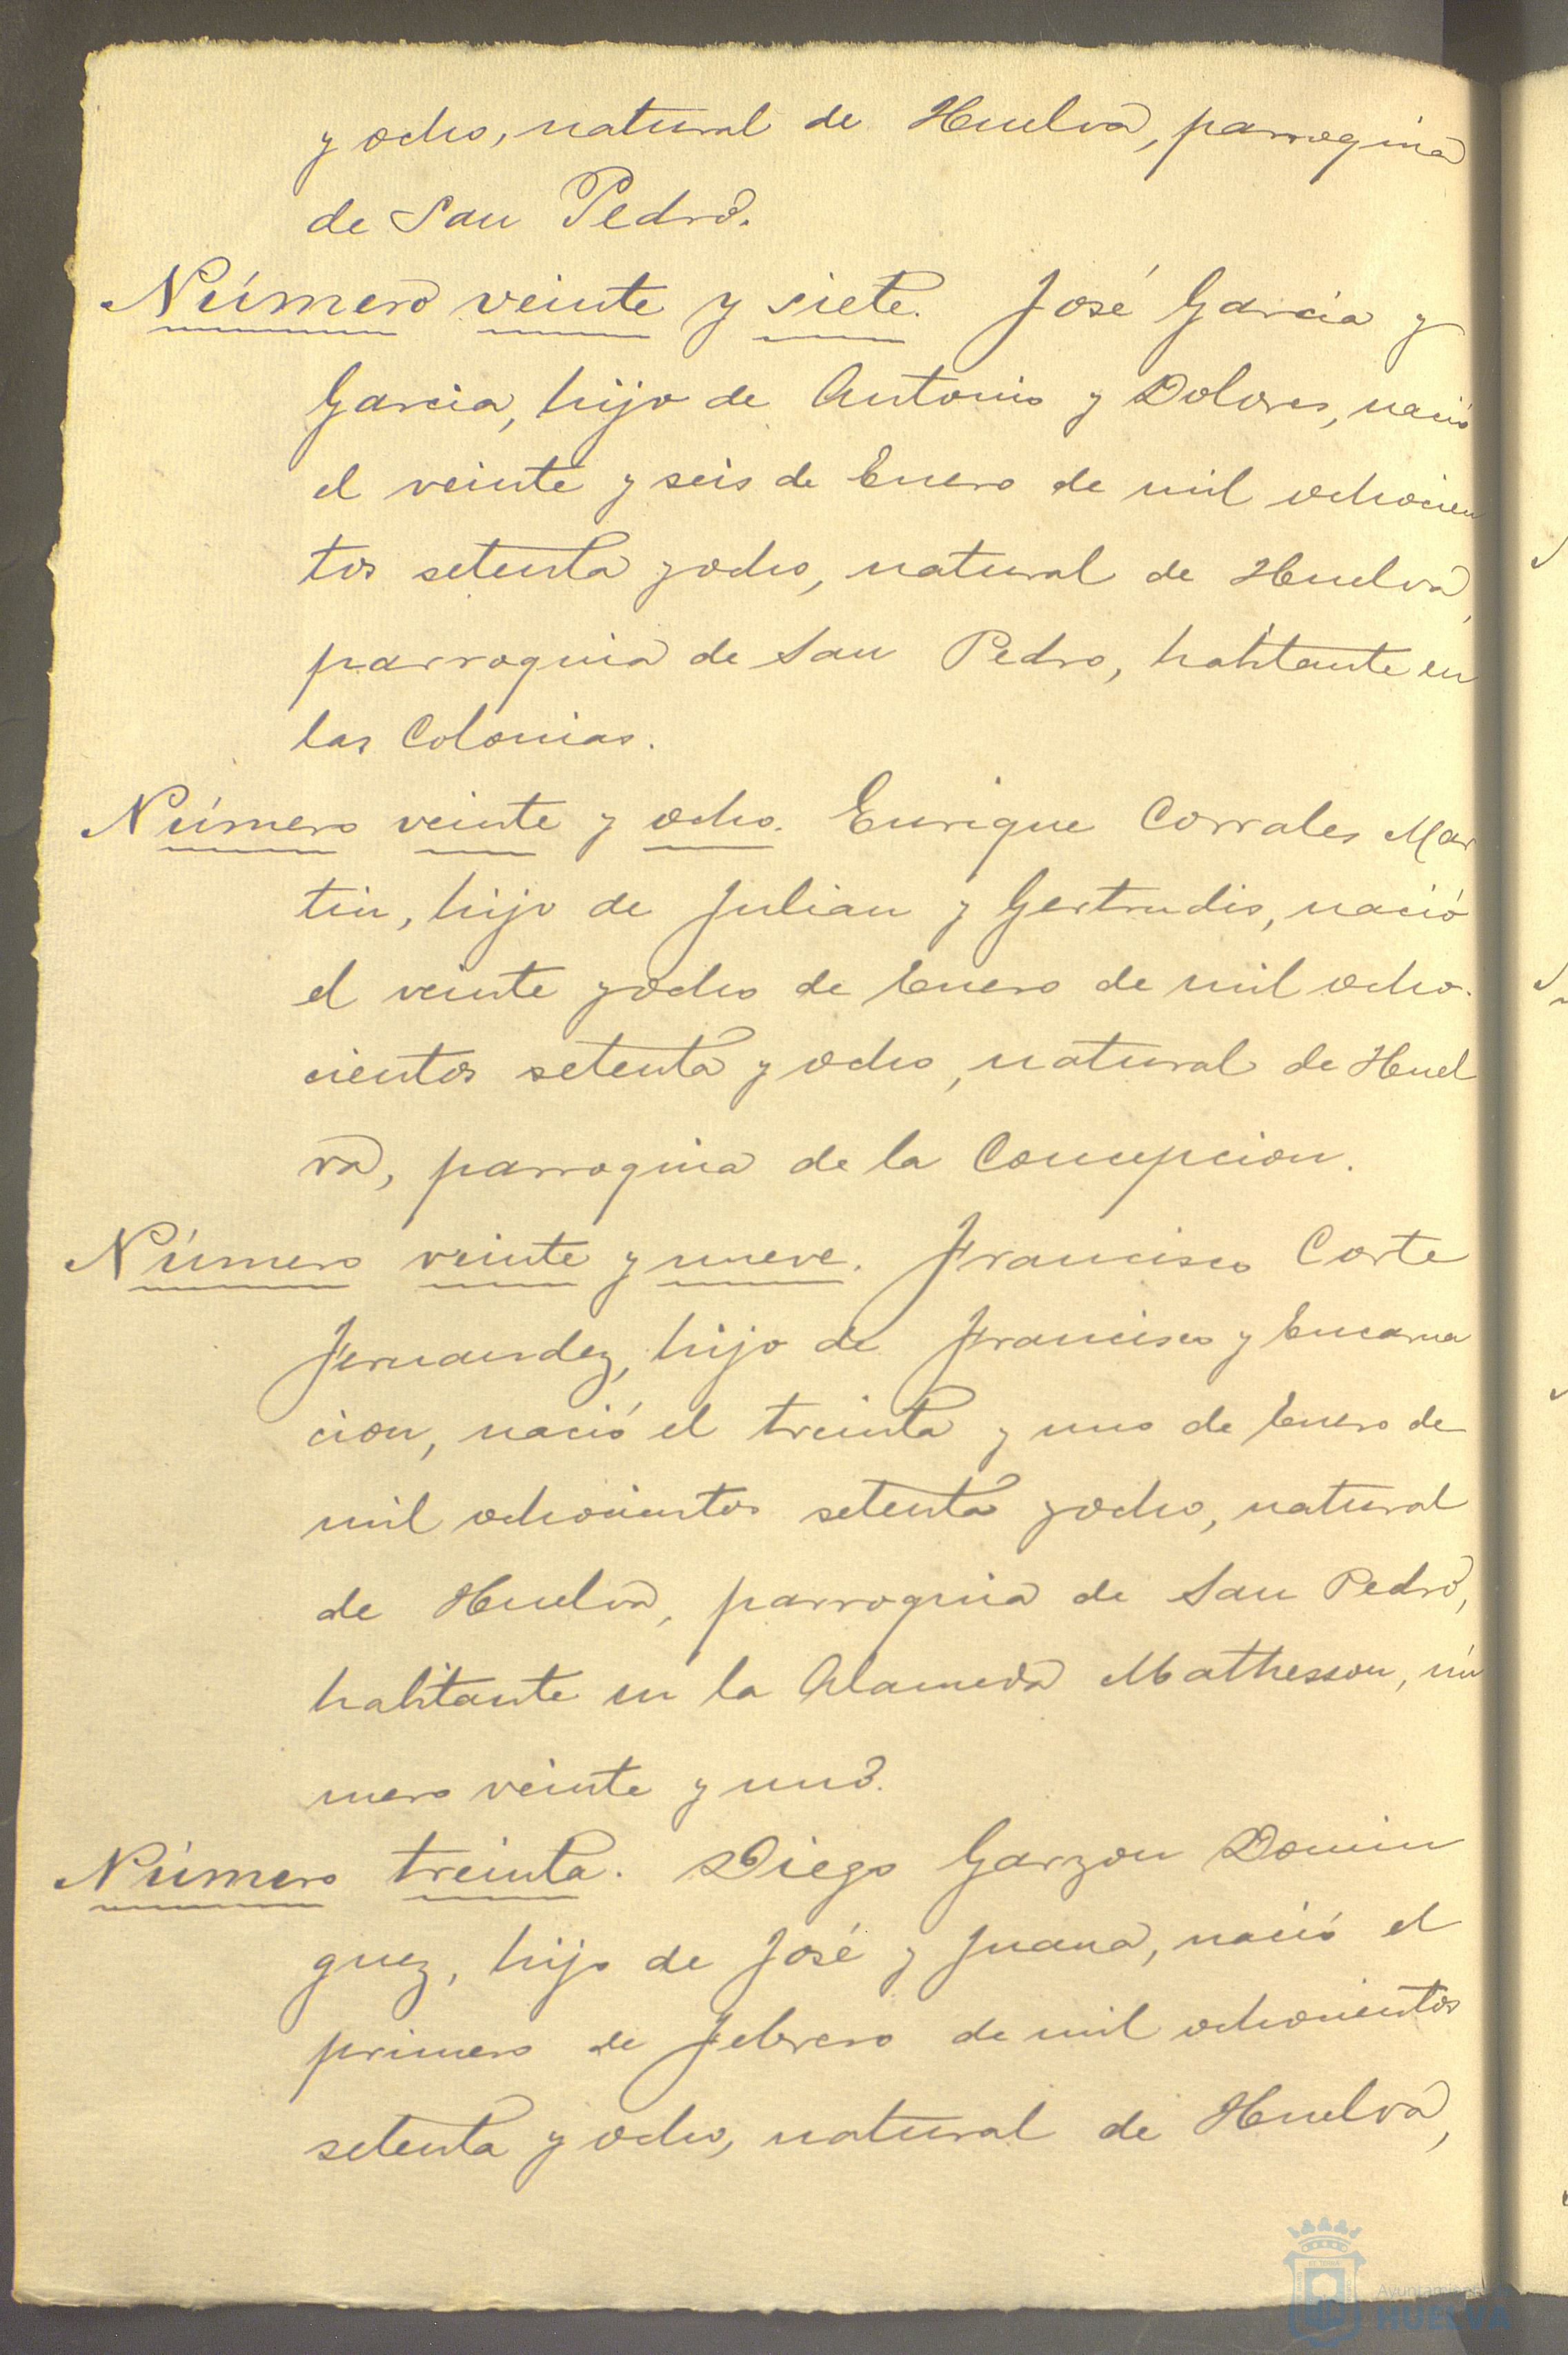 y ocho, natural de Huelva, parroquia
de San Pedro.
Número veinte y siete. José Garcia y
Garcia, hijo de Antonio y Dolores, nació
el veinte y seis de Enero de mil ochocien
tos setenta y ocho, natural de Huelva,
parroquia de San Pedro, habitante en
las Colonias.
Número veinte y ocho. Enrique Corrales Mar
tin, hijo de Julian y Gertrudis, nació
el veinte y ocho de Enero de mil ocho-
cientos setenta y ocho, natural de Huel
va, parroquia de la Concepcion.
Número veinte y nueve. Francisco Corte
Fernandez, hijo de Francisco y Encarna
cion, nació el treinta y uno de Enero de
mil ochocientos setenta y ocho, natural
de Huelva, parroquia de San Pedro,
habitante en la Alameda Mathesson, nú
mero veinte y uno.
Número treinta. Diego Garzon Domin
guez, hijo de José y Juana, nació el
primero de Febrero de mil ochocientos
setenta y ocho, natural de Huelva,
Ayuntamiento
HUELVA